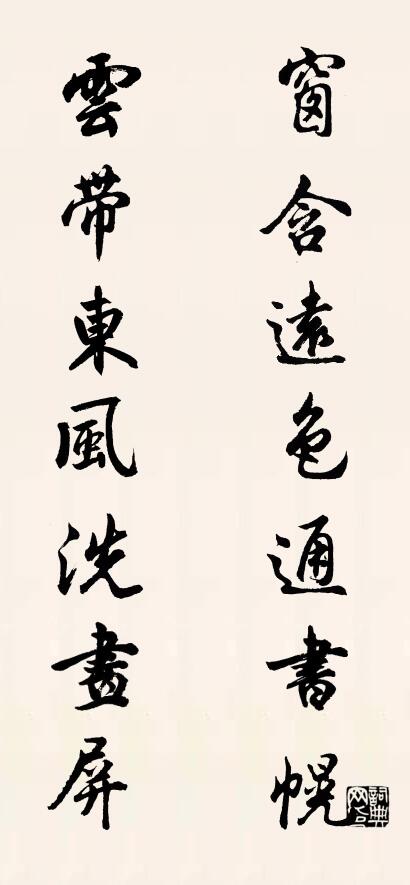 窗含遠色通書幌
雲帶東風洗畫屏
詞典網